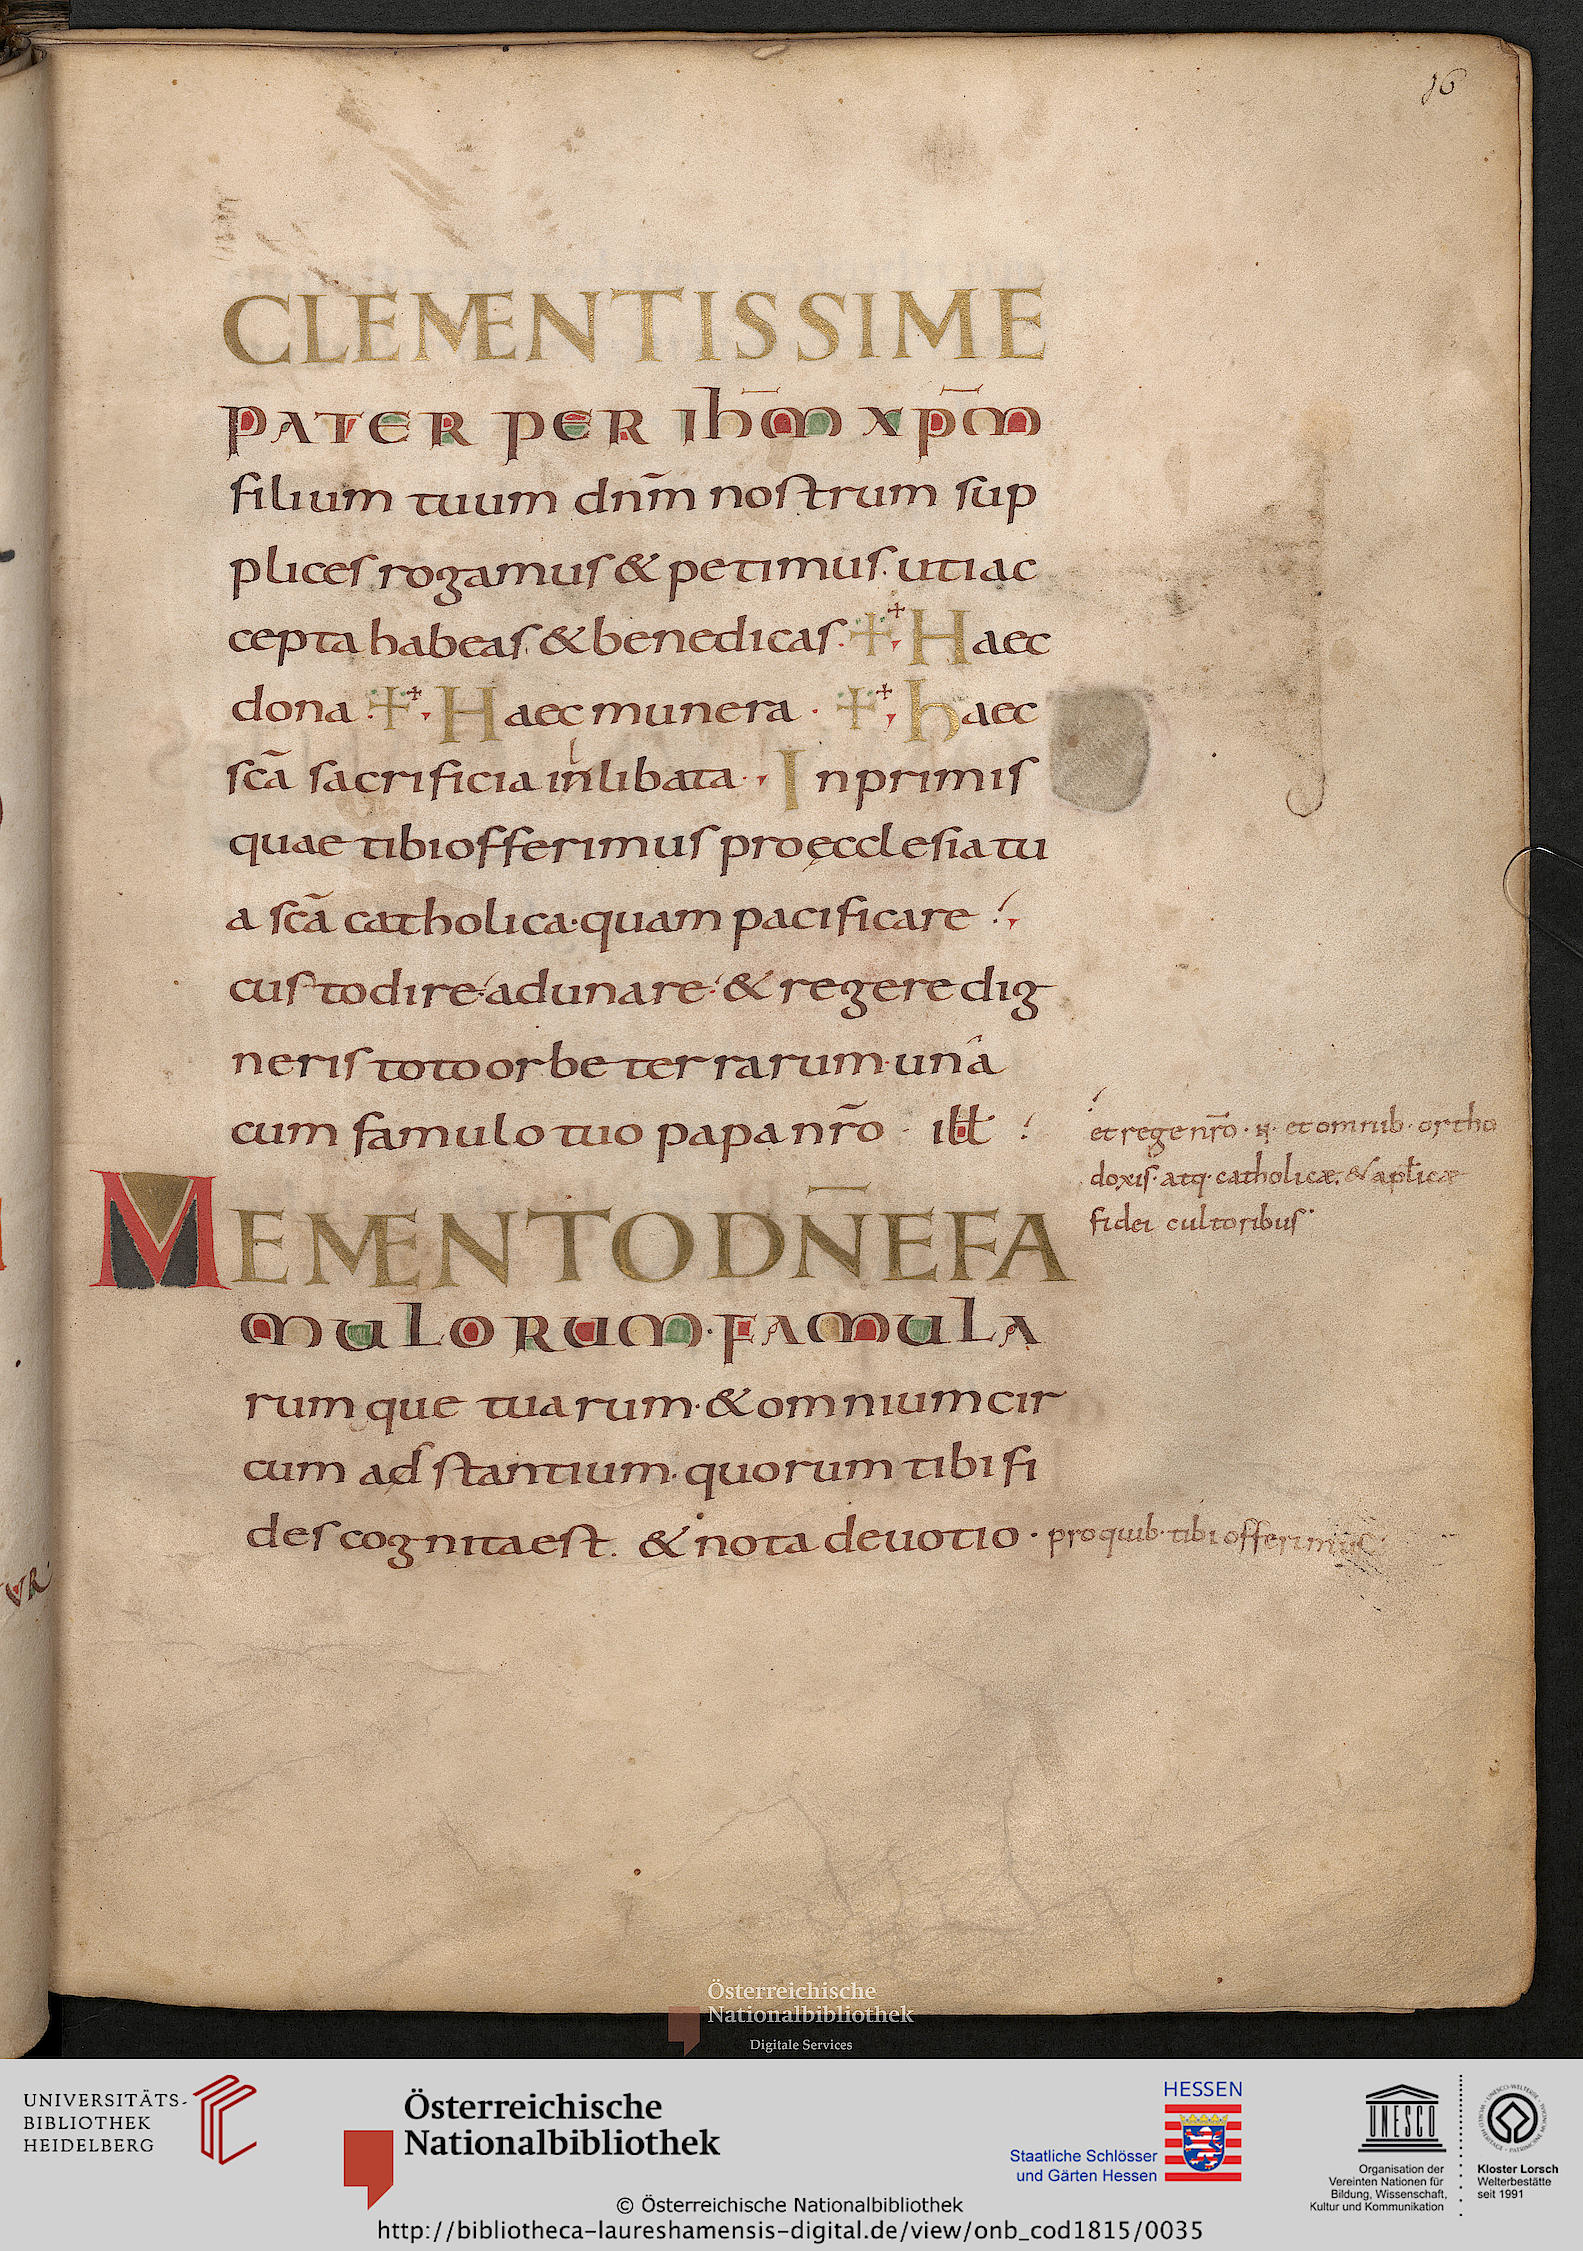 16
CLEMENTISSIME
PATER PER ihm̅ xp̅m
filium tuum dnm̅ nostrum sup
plices rogamus & petimus. uti ac
cepta habeas. & benedicas. ✢ + Haec
dona. ✢ + Haec munera · ✢ + haec
sc̄a sacrificia inlibata · Inprimis
quae tibi offerimus pro ęcclesia tu
a sc̄a catholica · quam pacificare
custodire adunare & regere dig
neris toto orbe terrarum · una
cum famulo tuo papa nr̄o · ill
et rege nr̄o · N · et omnib · ortho
doxis · atq · catholicæ · & ap̄licæ
fidei cultoribus ·
MEMENTO DN̄E FA
MULORUM · FAMULA
rumque tuarum · & omnium cir
cum adstantium · quorum tibi fi
des cognita est. & nota deuotio · pro quib · tibi offerimus
UR
Österreichische
Nationalbibliothek
Digitale Services
UNIVERSITÄTS-
BIBLIOTHEK
HEIDELBERG
Österreichische
Nationalbibliothek
HESSEN
Staatliche Schlösser
und Gärten Hessen
UNESCO
Organisation der
Vereinten Nationen für
Bildung, Wissenschaft,
Kultur und Kommunikation
Kloster Lorsch
Welterbestätte
seit 1991
© Österreichische Nationalbibliothek
http://bibliotheca-laureshamensis-digital.de/view/onb_cod1815/0035